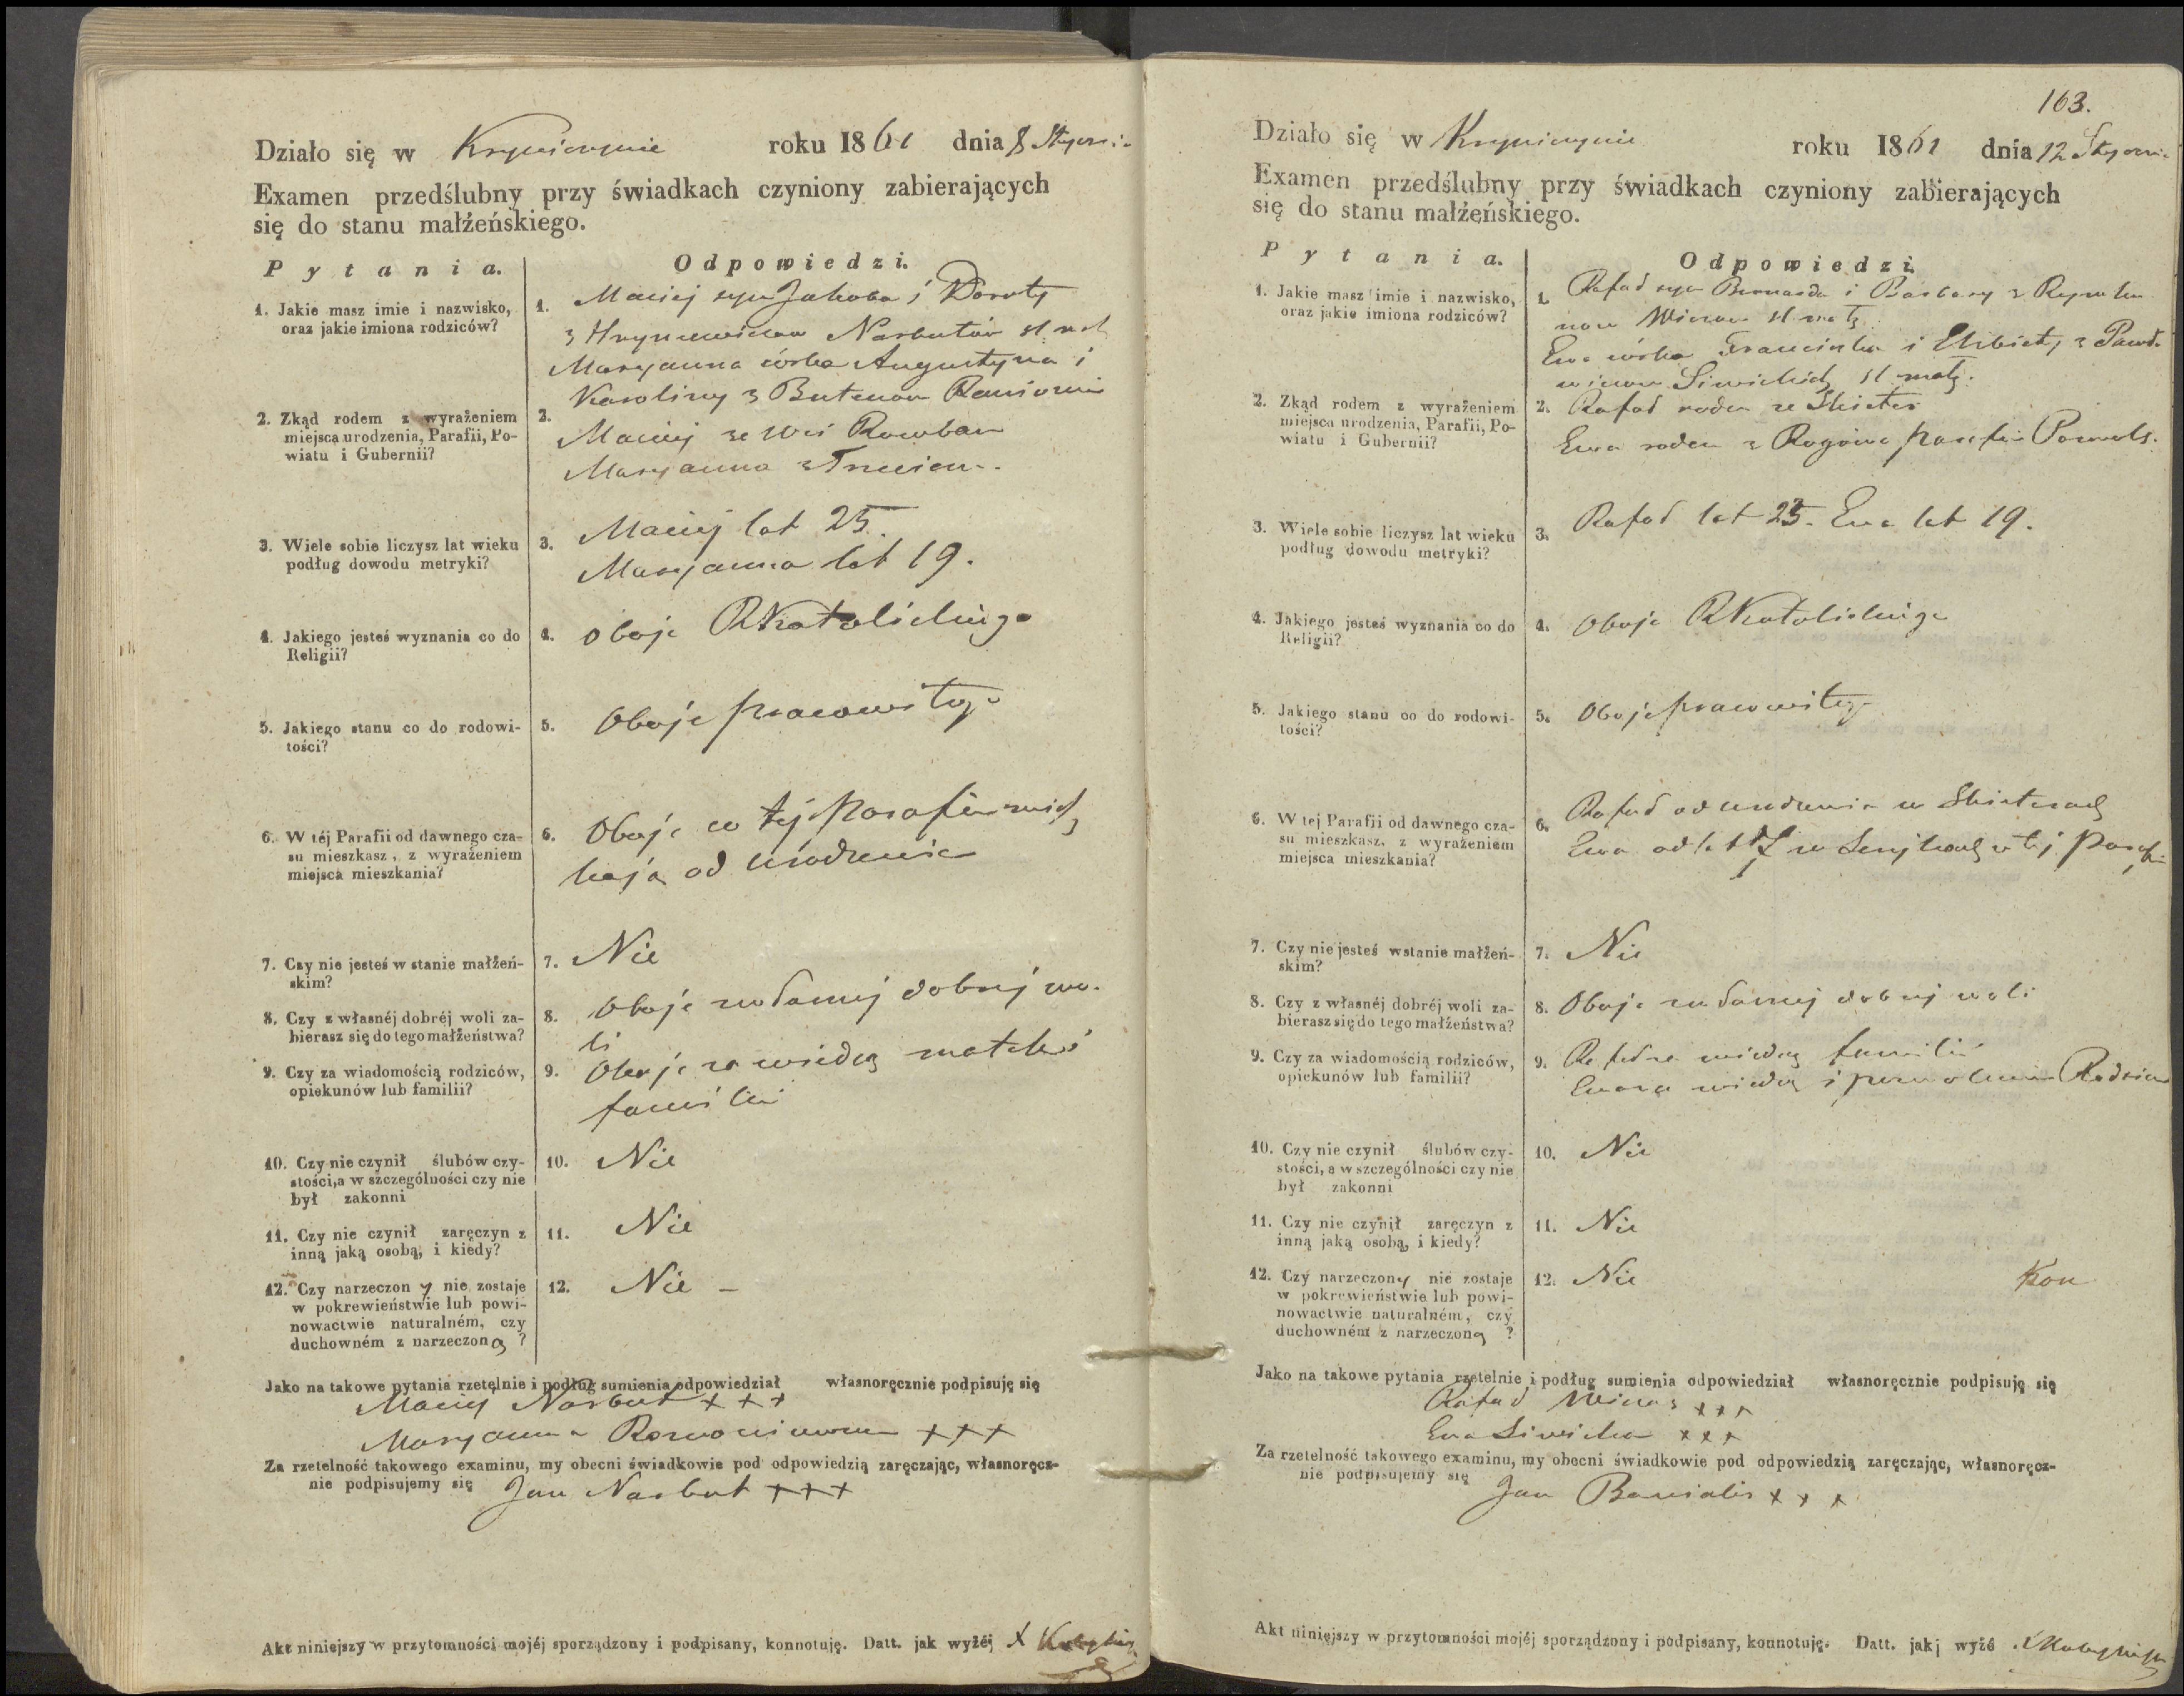 Działo się w roku 1861 dnia 8
Examen przedślubny przy świadkach czyniony zabierających
się do stanu małżeńskiego.
Pytania. Odpowiedzi.
1. Jakie masz imie i nazwisko,
oraz jakie imiona rodziców?
1. Maciej syn Jakoba i Doroty
z Narbutów
Maryanna córka Augustyna i
Karoliny z
2. Zkąd rodem z wyrażeniem
miejsca urodzenia, Parafii, Po-
wiatu i Gubernii?
2. Maciej ze wsi
Maryanna z
3. Wiele sobie liczysz lat wieku
podług dowodu metryki?
3. Maciej lat 25.
Maryanna lat 19.
4. Jakiego jesteś wyznania co do
Religii?
4. oboje RKatolickiego
5. Jakiego stanu co do rodowi-
tości?
5. Oboje pracowitego
6. W téj Parafii od dawnego cza-
su mieszkasz, z wyrażeniem
miejsca mieszkania?
6. Oboje w tej Parafii miesz
kają od urodzenia
7. Czy nie jesteś w stanie małżeń-
skim?
7. Nie
8. Czy z własnéj dobréj woli za-
bierasz się do tego małżeństwa?
8. Oboje z własnej dobrej wo-
li
9. Czy za wiadomością rodziców,
opiekunów lub familii?
9. Oboje za wiedzą matek i
familii
10. Czy nie czynił ślubów czy-
stości, a w szczególności czy nie
był zakonni
10. Nie
11. Czy nie czynił zaręczyn z
inną jaką osobą, i kiedy?
11. Nie
12. Czy narzeczony nie zostaje
w pokrewieństwie lub powi-
nowactwie naturalném, czy
duchowném z narzeczoną ?
12. Nie –
Jako na takowe pytania rzetelnie i podług sumienia odpowiedział własnoręcznie podpisuję się
Maciej Narbut +++
Maryanna +++
Za rzetelność takowego examinu, my obecni świadkowie pod odpowiedzią zaręczając, własnoręcz-
nie podpisujemy się Jan Narbut +++
Akt niniejszy w przytomności mojéj sporządzony i podpisany, konnotuję. Datt. jak wyżéj X
163.
Działo się w roku 1861 dnia 12
Examen przedślubny przy świadkach czyniony zabierających
się do stanu małżeńskiego.
Pytania. Odpowiedzi.
1. Jakie masz imie i nazwisko,
oraz jakie imiona rodziców?
1. Rafał syn Bernarda i Barbary z
Ewa córka Franciszka i Elżbiety z
Siwickich
2. Zkąd rodem z wyrażeniem
miejsca urodzenia, Parafii, Po-
wiatu i Gubernii?
2. Rafał rodem ze
Ewa rodem z Rogowa parafii
3. Wiele sobie liczysz lat wieku
podług dowodu metryki?
3. Rafał lat Ewa lat 19.
4. Jakiego jesteś wyznania co do
Religii?
4. Oboje RKatolickiego
5. Jakiego stanu co do rodowi-
tości?
5. Oboje pracowitego
6. W tej Parafii od dawnego cza-
su mieszkasz, z wyrażeniem
miejsca mieszkania?
6. Rafał od urodzenia w
Ewa od lat w w tej Parafii
7. Czy nie jesteś wstanie małżeń-
skim?
7. Nie
8. Czy z własnéj dobréj woli za-
bierasz się do tego małżeństwa?
8. Oboje z własnej dobrej woli
9. Czy za wiadomością rodziców,
opiekunów lub familii?
9. Rafał za wiedzą familii
Ewa za wiedzą i pozwoleniem Rodziców
10. Czy nie czynił ślubów czy-
stości, a w szczególności czy nie
był zakonni
10. Nie
11. Czy nie czynił zaręczyn z
inną jaką osobą, i kiedy?
11. Nie
12. Czy narzeczony nie zostaje
w pokrewieństwie lub powi-
nowactwie naturalném, czy
duchowném z narzeczoną ?
12. Nie
Jako na takowe pytania rzetelnie i podług sumienia odpowiedział własnoręcznie podpisuję się
Rafał +++
Ewa Siwicka +++
Za rzetelność takowego examinu, my obecni świadkowie pod odpowiedzią zaręczając, własnoręcz-
nie podpisujemy się Jan +++
Akt niniejszy w przytomności mojéj sporządzony i podpisany, konnotuję. Datt. jakj wyżé